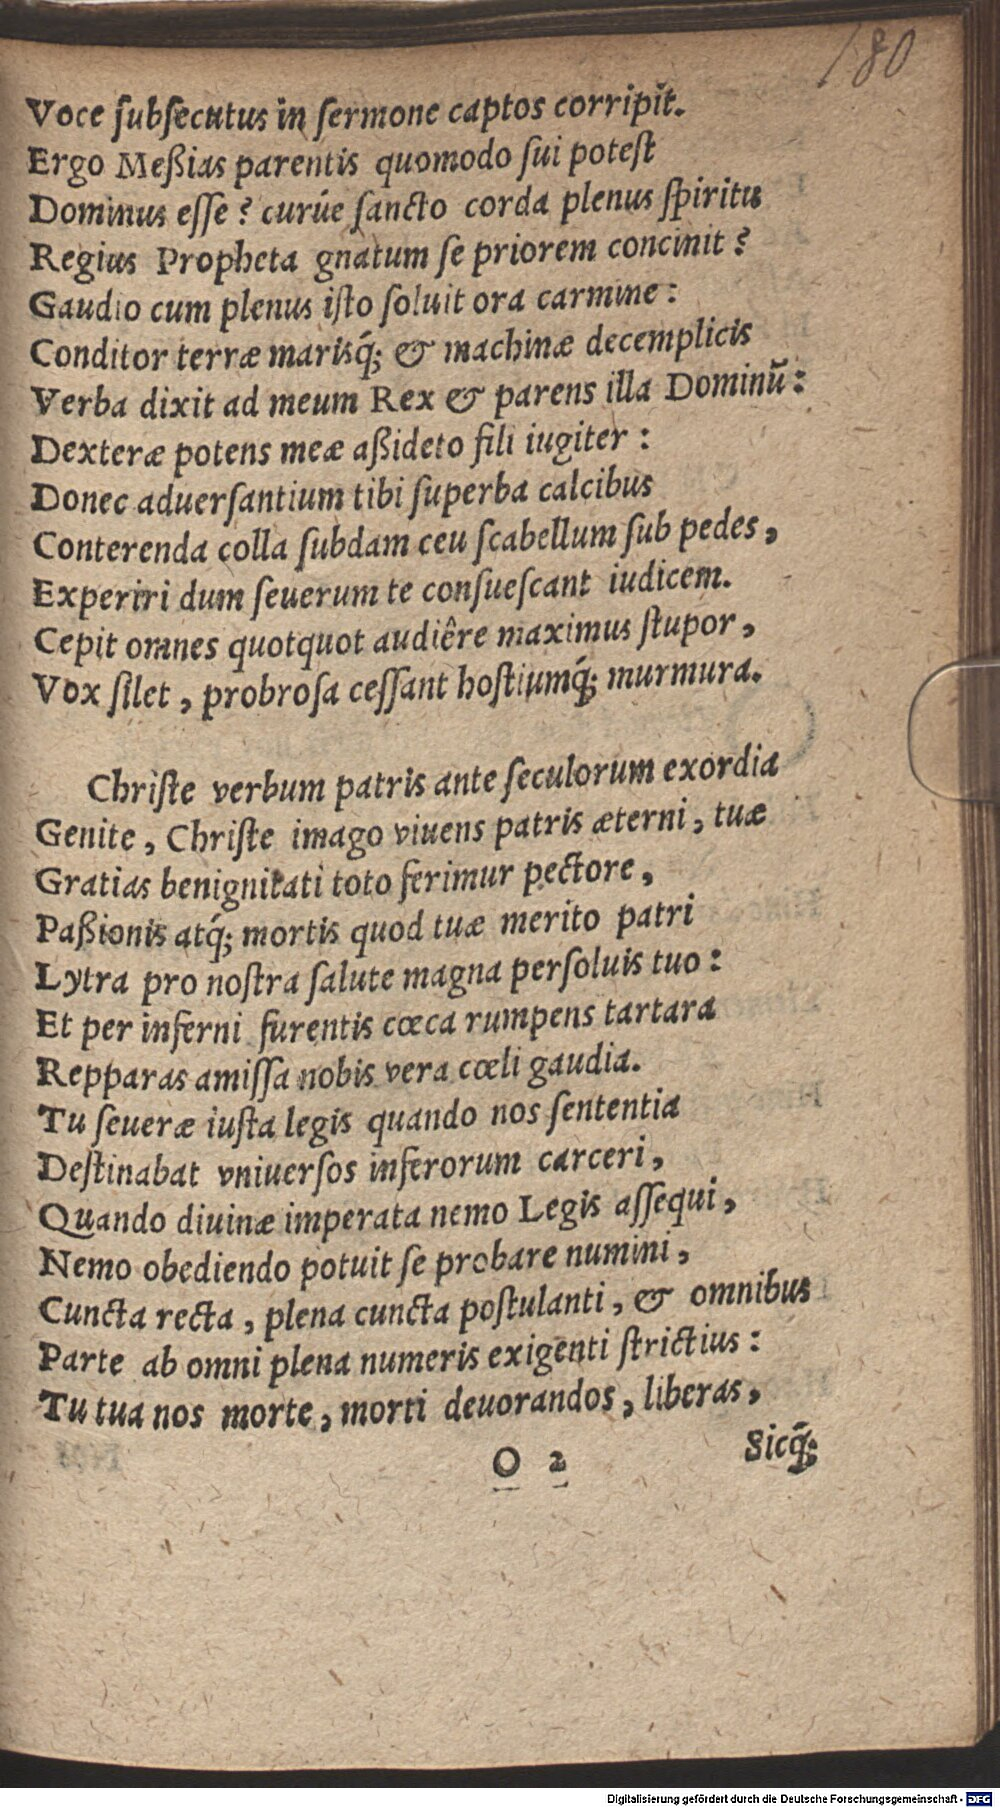 180
Voce ſubſecutus in ſermone captos corripit.
Ergo Meßias parentis quomodo ſui poteſt
Dominus eſſe? curúe ſancto corda plenus ſpiritu
Regius Propheta gnatum ſe priorem concinit?
Gaudio cum plenus iſto ſoluit ora carmine:
Conditor terræ marisq́; & machinæ decemplicis
Verba dixit ad meum Rex & parens illa Dominū:
Dexteræ potens meæ aßideto fili iugiter:
Donec aduerſantium tibi ſuperba calcibus
Conterenda colla ſubdam ceu ſcabellum ſub pedes,
Experiri dum ſeuerum te conſueſcant iudicem.
Cepit omnes quotquot audiêre maximus ſtupor,
Vox ſilet, probroſa ceſſant hoſtiumq́; murmura.
Chriſte verbum patris ante ſeculorum exordia
Genite, Chriſte imago viuens patris æterni, tuæ
Gratias benignitati toto ferimur pectore,
Paßionis atq́; mortis quod tuæ merito patri
Lytra pro noſtra ſalute magna perſoluis tuo:
Et per inferni furentis cœca rumpens tartara
Repparas amiſſa nobis vera cœli gaudia.
Tu ſeueræ iuſta legis quando nos ſententia
Deſtinabat vniuerſos inferorum carceri,
Quando diuinæ imperata nemo Legis aſſequi,
Nemo obediendo potuit ſe probare numini,
Cuncta recta, plena cuncta poſtulanti, & omnibus
Parte ab omni plena numeris exigenti ſtrictius:
Tu tua nos morte, morti deuorandos, liberas,
O 2 Sicq́;
Digitalisierung gefördert durch die Deutsche Forschungsgemeinschaft - DFG